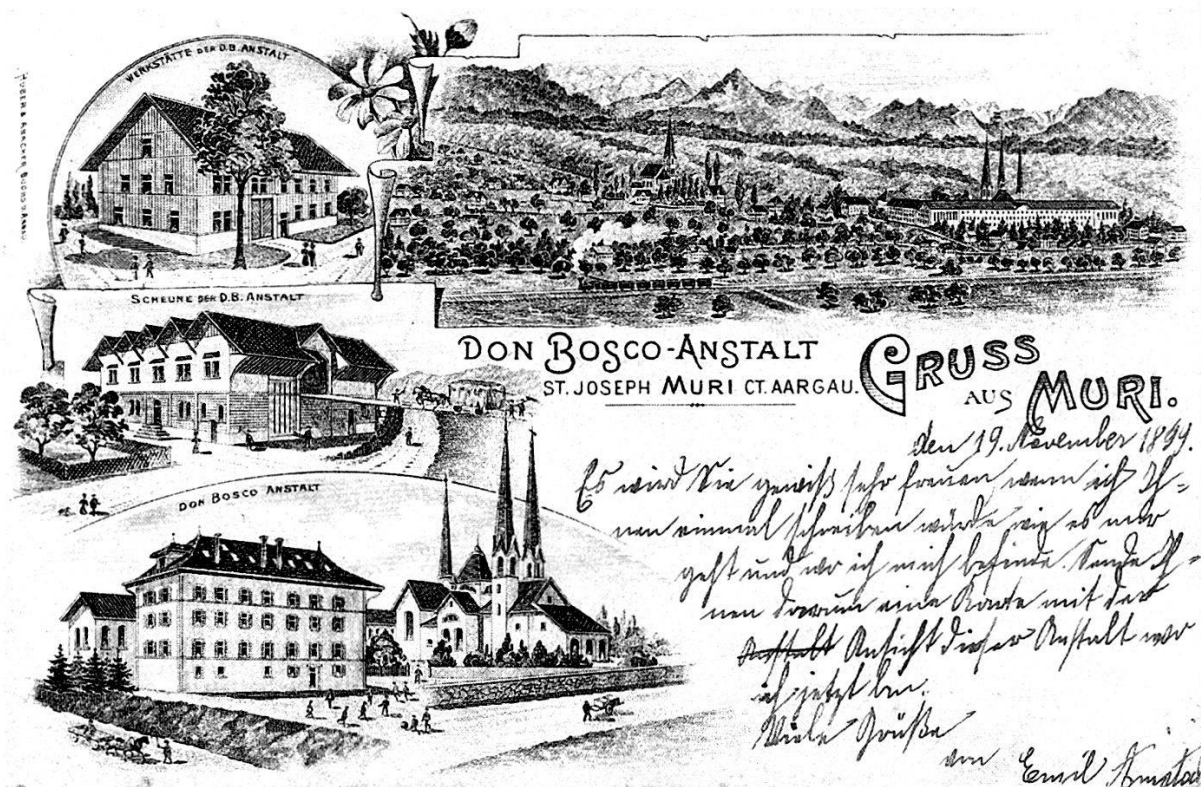 WERKSTÄTTE DER D.B. ANSTALT
SCHEUNE DER D.B. ANSTALT
DON BOSCO ANSTALT
DON BOSCO-ANSTALT
ST. JOSEPH MURI CT. AARGAU.
GRUSS
AUS MURI.
den 19. November 1899.
Es wird Sie gewiß sehr freuen wenn ich Ih-
nen einmal schreiben würde wie es mir
geht und wo ich mich befinde. Sende Ih-
nen darum eine Karte mit der
Anstalt Ansicht dieser Anstalt wo
ich jetzt bin.
Viele Grüße
von Emil